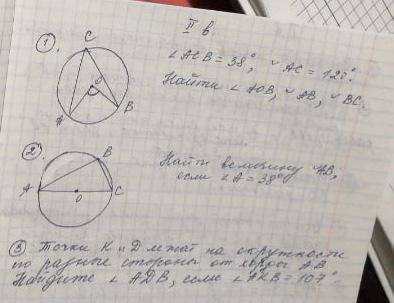 II в.
1.
∠ACB = 38°, ◡AC = 120°.
Найти ∠AOB, ◡AB, ◡BC.
C
O
A
B
2.
Найти величину ◡AB,
если ∠A = 38°
B
A
O
C
3 Точки K и D лежат на окружности
по разные стороны от хорды AB
Найдите ∠ADB, если ∠AKB = 107°